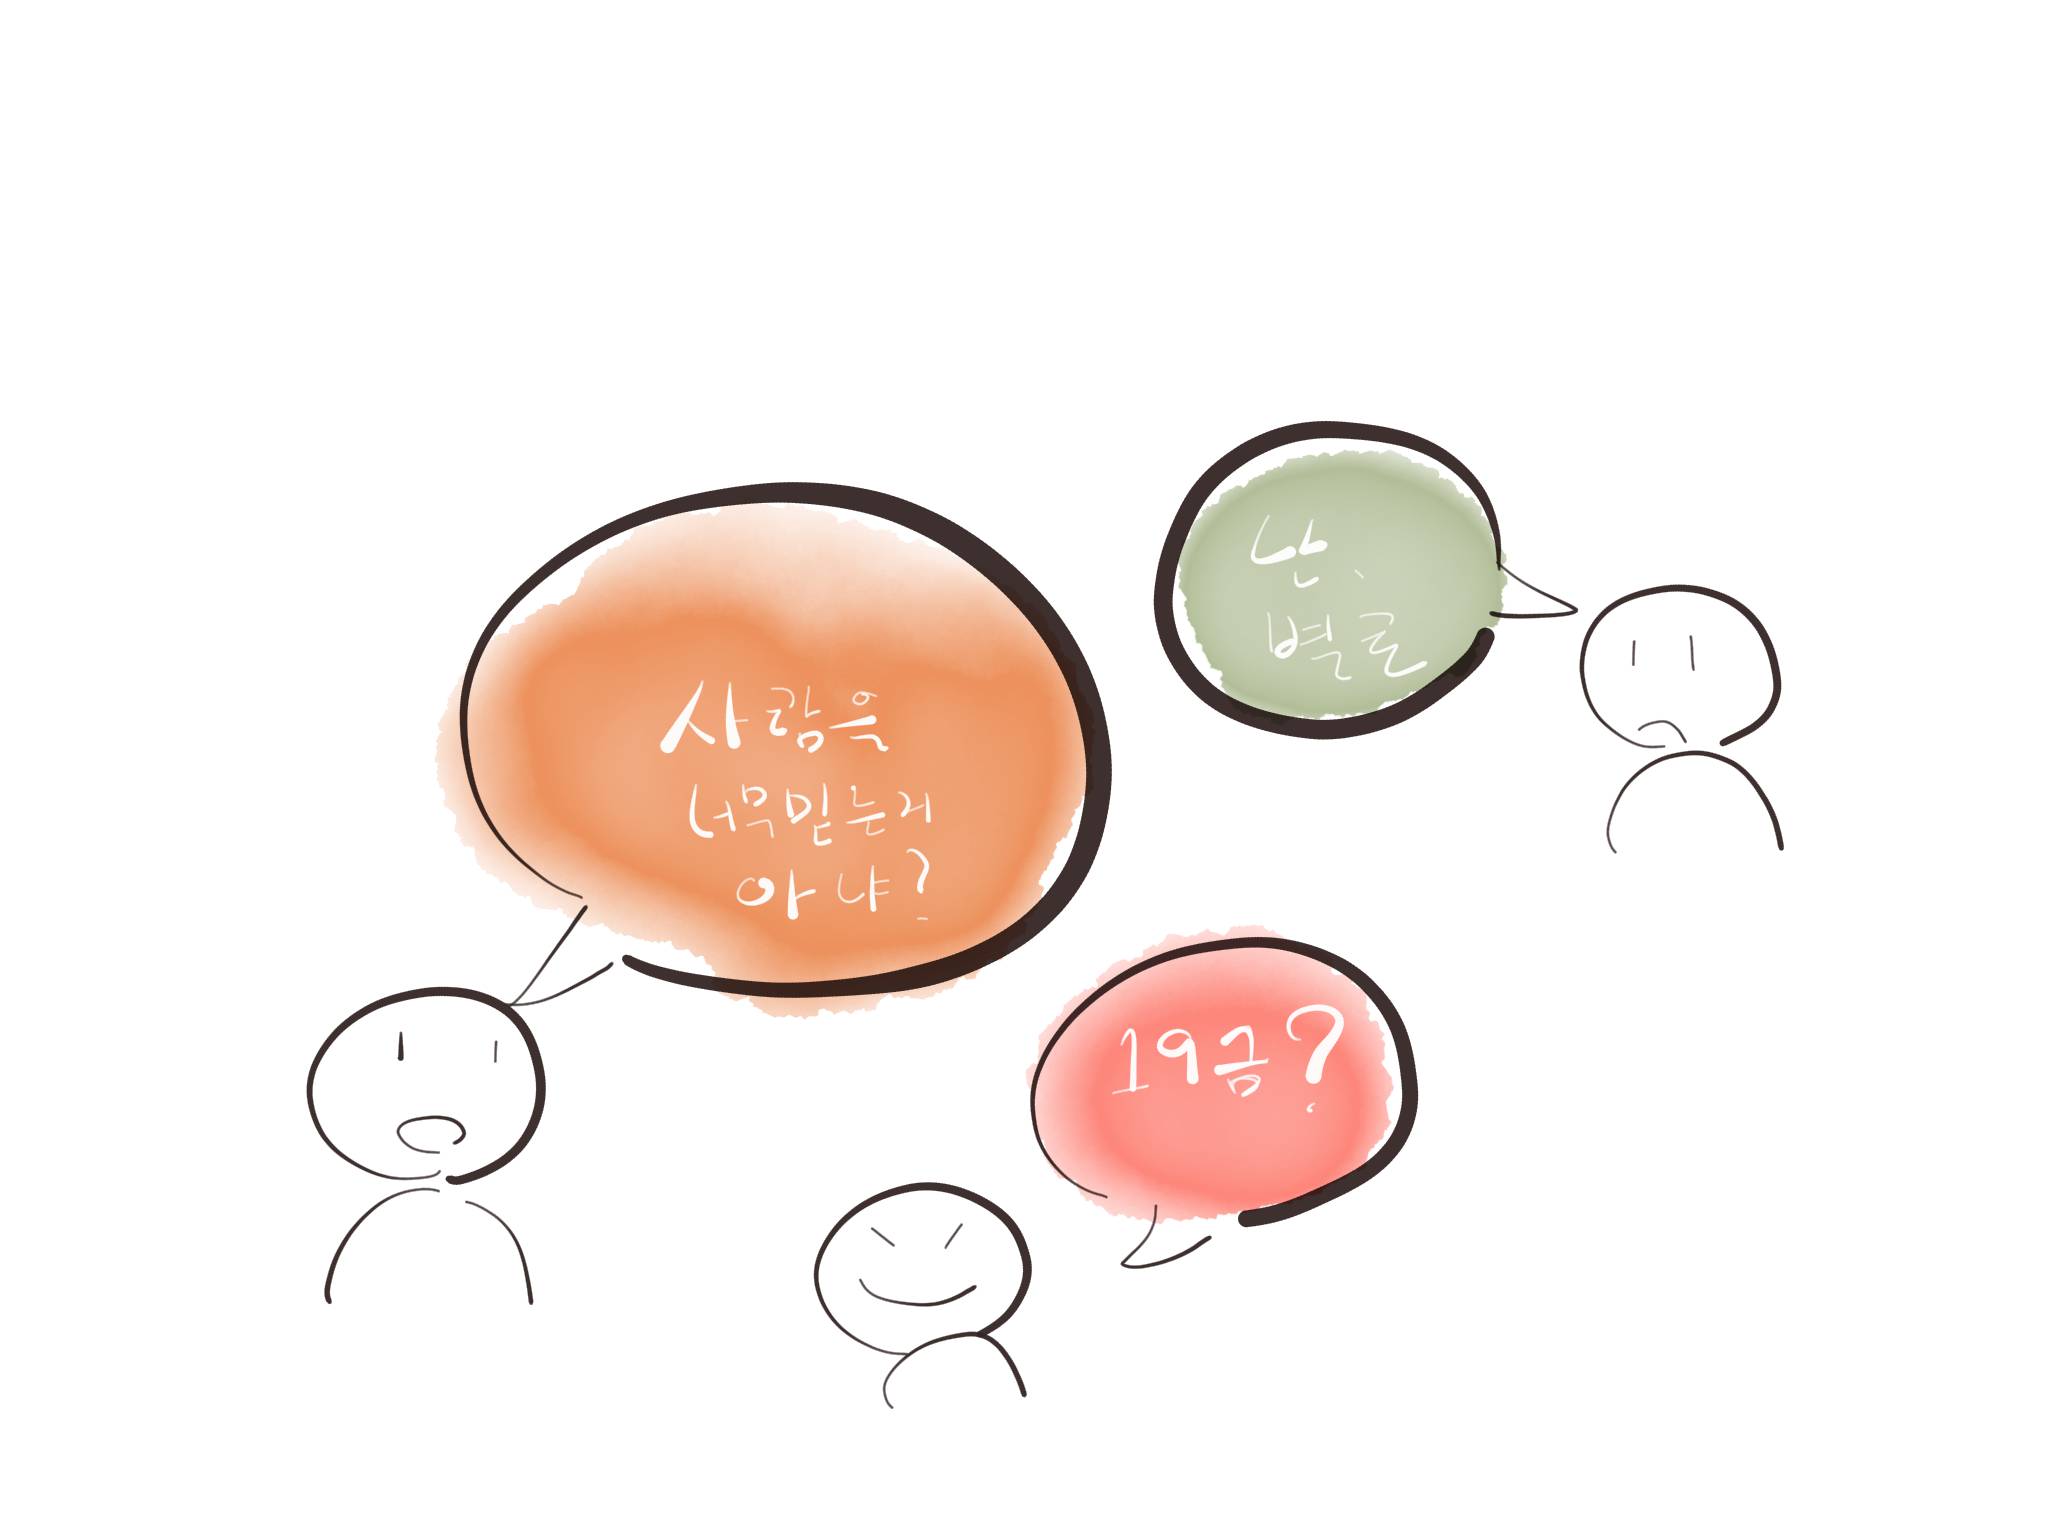 사람을
너무믿는거
아냐?
난、
별로
19금?